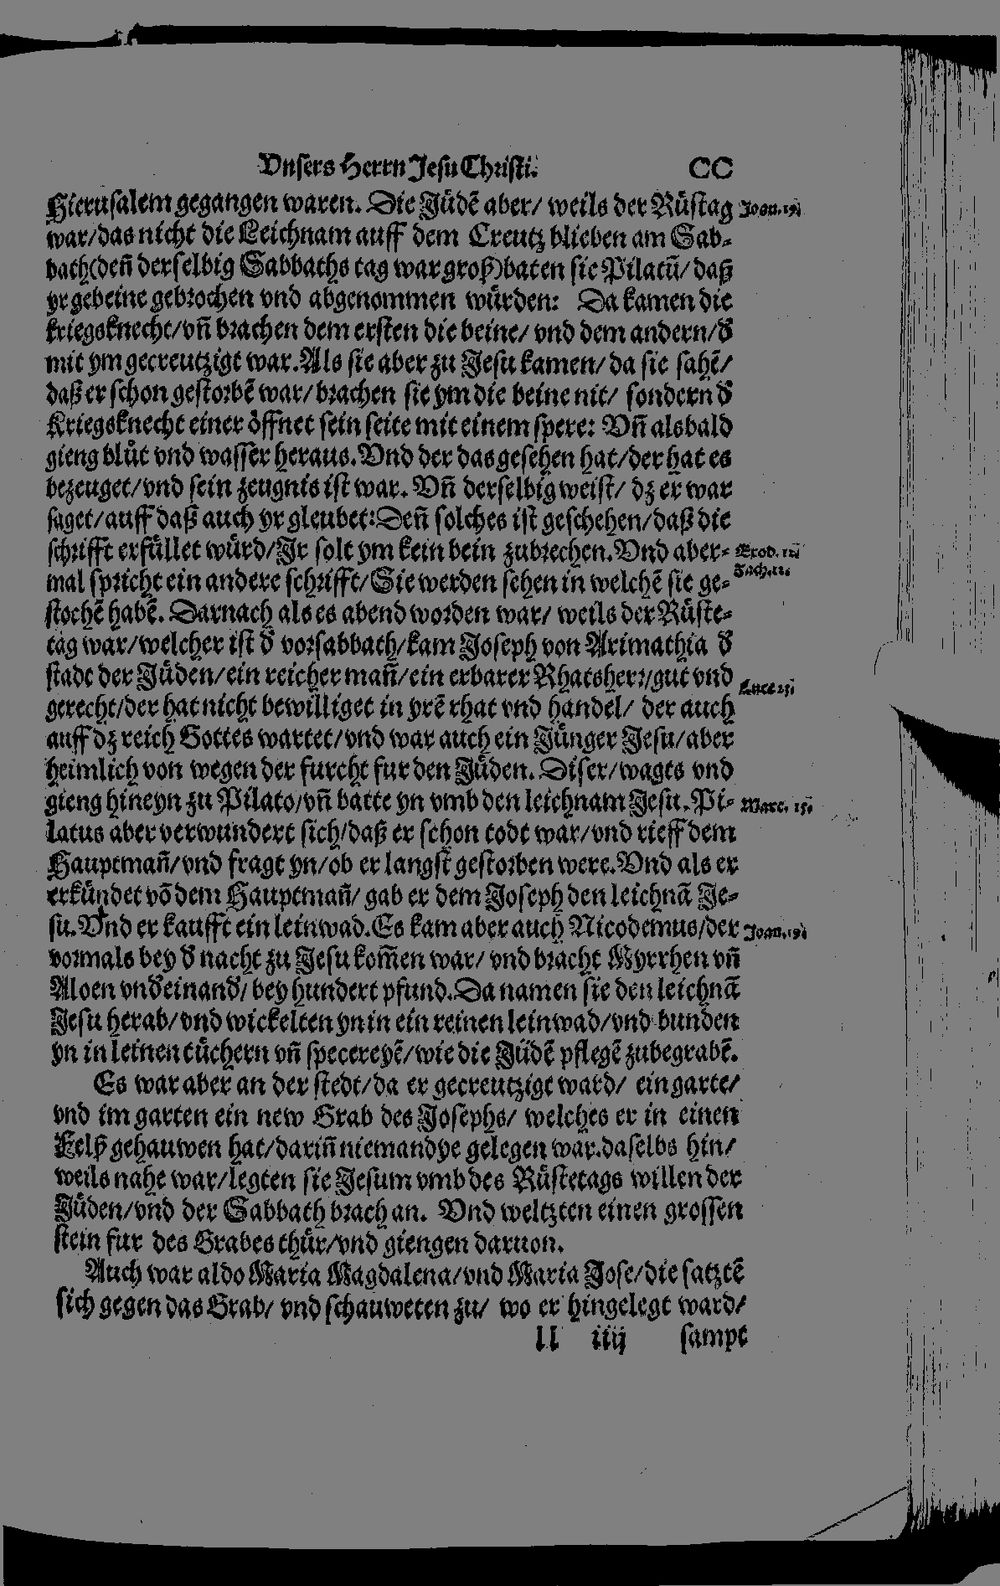 Vnsers Herrn Jesu Christi. CC
Hierusalem gegangen waren. Die Jüdẽ aber/ weils der Rüstag Joan. 19.
war/das nicht die Leichnam auff dem Creutz blieben am Sab-
bath(deñ derselbig Sabbaths tag war groß)baten sie Pilatũ/ daß
yr gebeine gebrochen vnd abgenommen würden: Da kamen die
kriegsknecht/vñ brachen dem ersten die beine/ vnd dem andern/d
mit ym gecreutzigt war. Als sie aber zu Jesu kamen/ da sie sahẽ/
daß er schon gestorbẽ war/ brachen sie ym die beine nit/ sondern d
Kriegsknecht einer öffnet sein seite mit einem spere: Vñ alsbald
gieng blůt vnd wasser heraus. Vnd der das gesehen hat/der hat es
bezeuget/vnd sein zeugnis ist war. Vñ derselbig weist/ dz er war
saget/auff daß auch yr gleubet: Deñ solches ist geschehen/daß die
schrifft erfüllet würd/Jr solt ym kein bein zubrechen. Vnd aber- Exod.
mal spricht ein andere schrifft/ Sie werden sehen in welchẽ sie ge- Zach.
stochẽ habẽ. Darnach als es abend worden war/ weils der Rüste-
tag war/welcher ist d vorsabbath/kam Joseph von Arimathia d
stadt der Jüden/ein reicher mañ/ein erbarer Rhatsherr/gut vnd
gerecht/der hat nicht bewilliget in yrẽ rhat vnd handel/ der auch Luce
auff dz reich Gottes wartet/vnd war auch ein Jünger Jesu/aber
heimlich von wegen der furcht fur den Jüden. Diser/wagts vnd
gieng hineyn zu Pilato/vñ batte yn vmb den leichnam Jesu. Pi- Marc. 15.
latus aber verwundert sich/daß er schon todt war/vnd rieff dem
Hauptmañ/vnd fragt yn/ob er langst gestorben were. Vnd als er
erkündet võ dem Hauptmañ/ gab er dem Joseph den leichnã Je-
su. Vnd er kaufft ein leinwad. Es kam aber auch Nicodemus/der Joan. 19.
vormals bey d nacht zu Jesu kom̃en war/ vnd bracht Myrrhen vñ
Aloen vndeinand/ bey hundert pfund. Da namen sie den leichnã
Jesu herab/vnd wickelten yn in ein reinen leinwad/vnd bunden
yn in leinen tüchern vñ specereyẽ/wie die Jüdẽ pflegẽ zubegrabẽ.
Es war aber an der stedt/da er gecreutzigt ward/ ein garte/
vnd im garten ein new Grab des Josephs/ welches er in einen
Felß gehauwen hat/dariñ niemand ye gelegen war. daselbs hin/
weils nahe war/legten sie Jesum vmb des Rüstetags willen der
Jüden/vnd der Sabbath brach an. Vnd weltzten einen grossen
stein fur des Grabes thür/vnd giengen daruon.
Auch war aldo Maria Magdalena/vnd Maria Jose/die satztẽ
sich gegen das Grab/ vnd schauweten zu/ wo er hingelegt ward/
ll iiij sampt